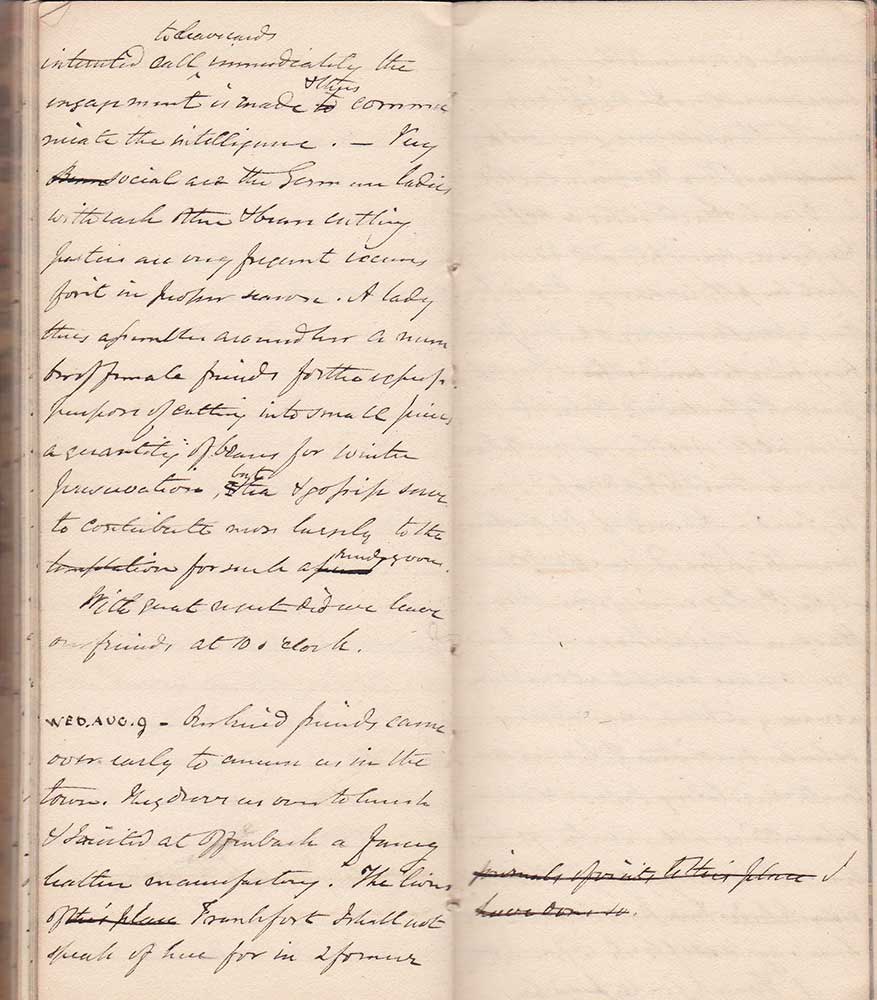 to leave cards
intended call immediately the
& thus
engagement is made to commu
nicate the intelligence. — Very
social are the German ladies
with each other & bean cutting
parties are very frequent
in proper season. A lady
thus assembles around her a num
ber of female friends for the express
purpose of cutting into small pieces
a quantity of beans for winter
but
preservation, tea & gossip serve
to contribute more largely to the
temptation for such a rendezvous.
With great regret did we leave
our friends at 10 o'clock.
WED. AUG. 9 – Our kind friends came
over early to amuse us in the
town. They drove us over to lunch
& I visited at Offenbach a fancy
leather manufactory. The lions
of this place Frankfort I shall not
speak of here for in 2 former
journals of visits to this place I
have done so.